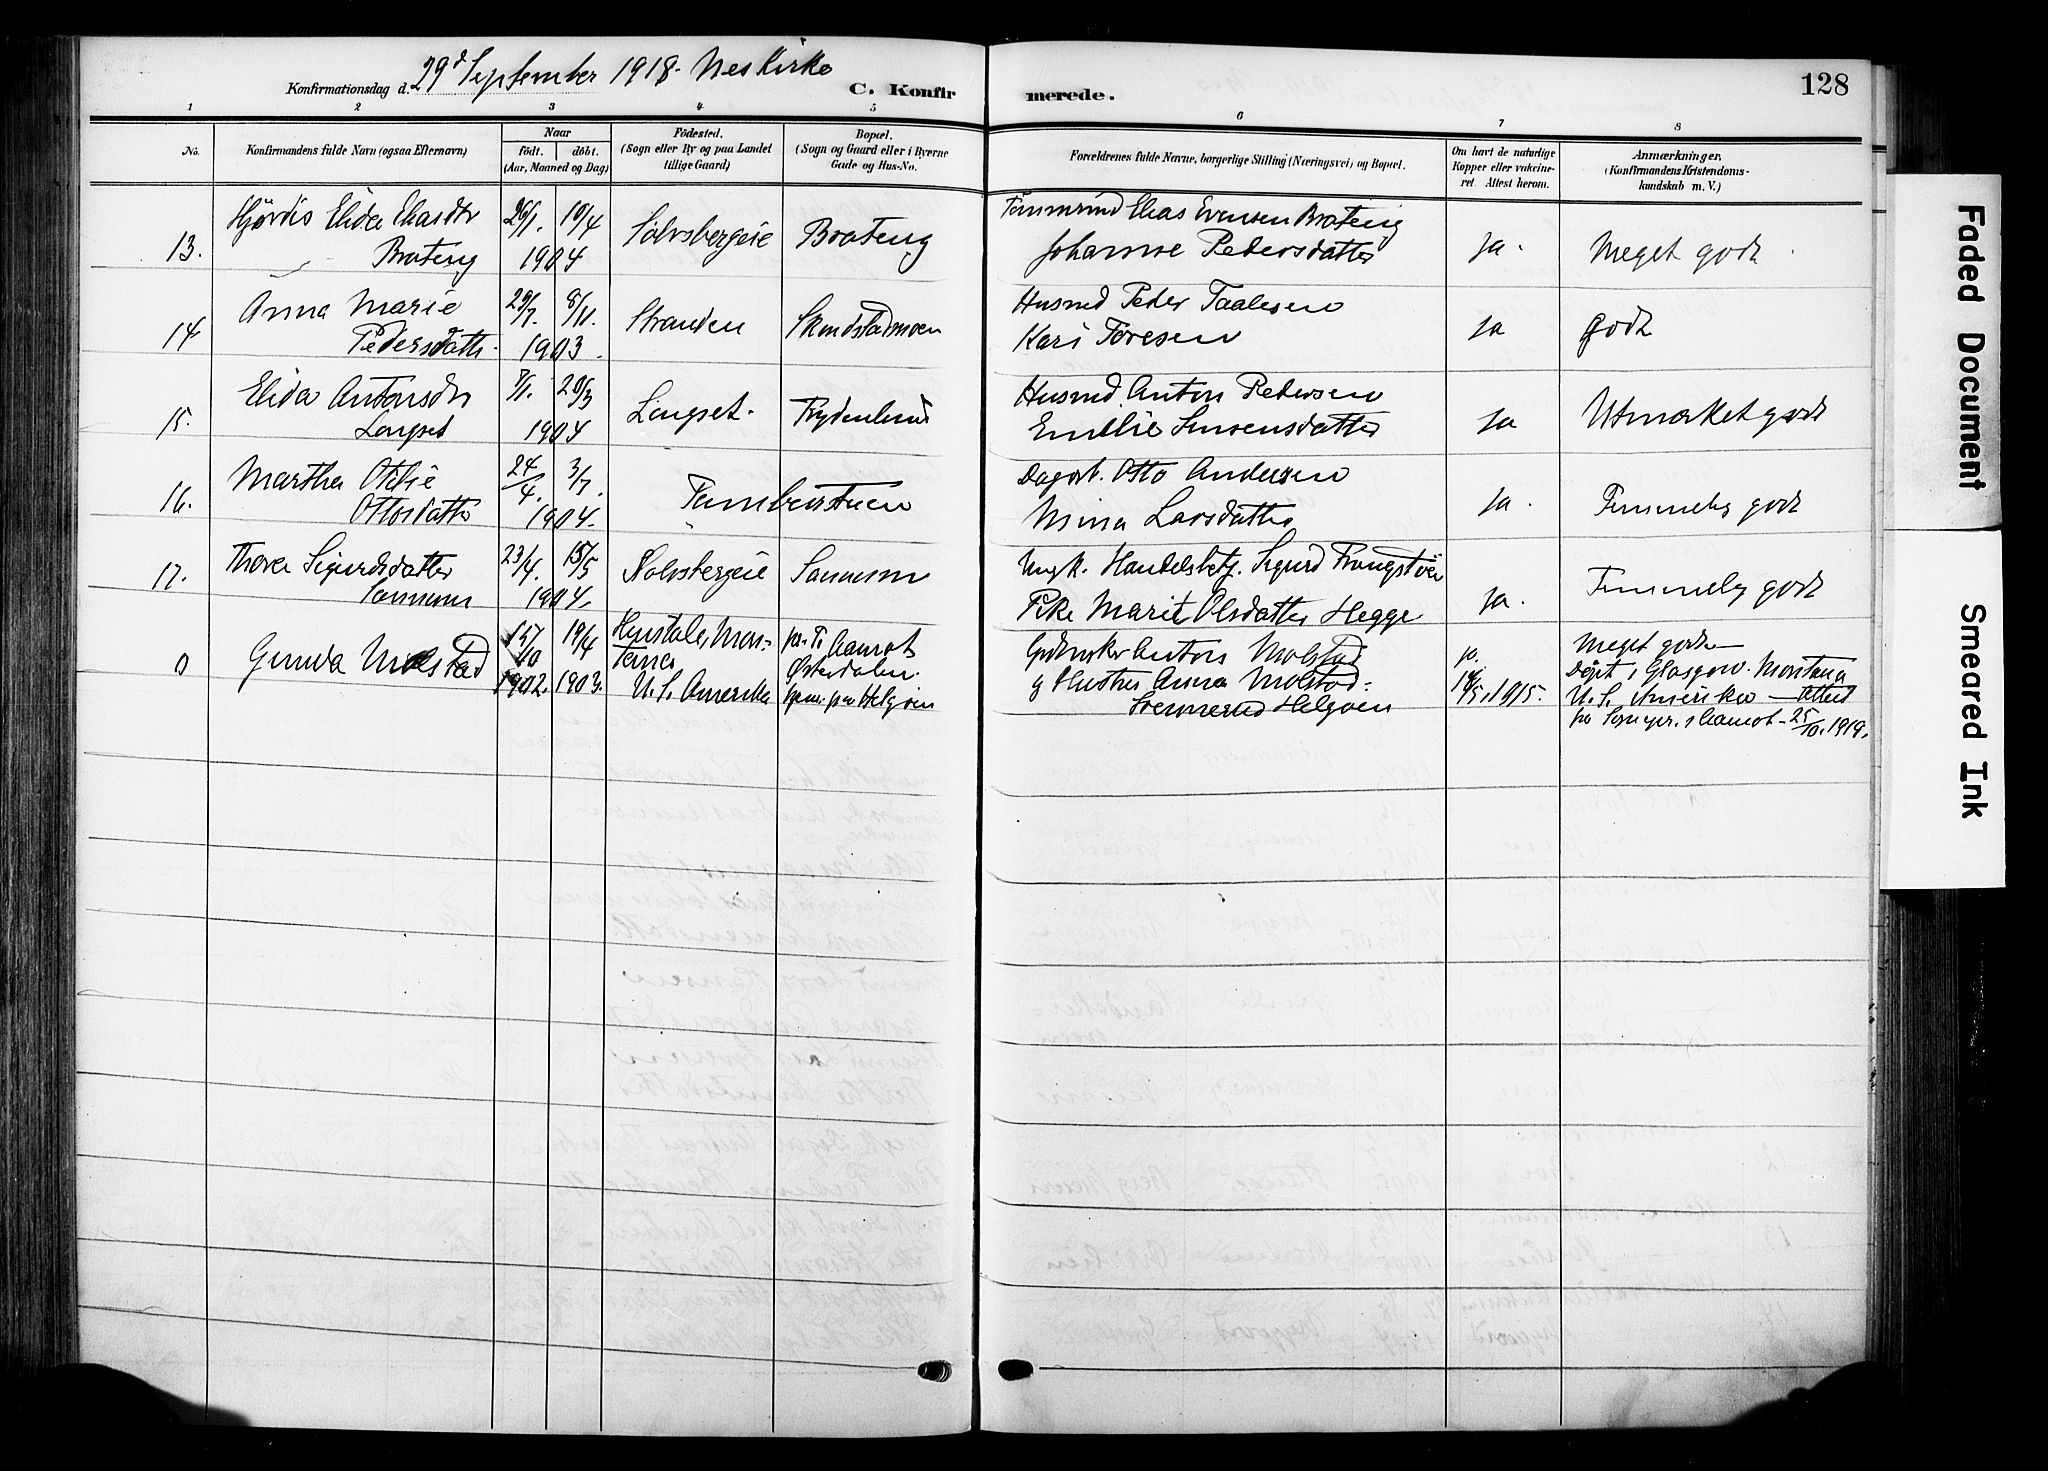 Konfirmationsdag d. 29d September 1918. Nes Kirke
C. Konfirmerede.
128
1 2 3 4 5 6 7 8
No.
Konfirmandens fulde Navn (ogsaa Efternavn)
Naar
født. døbt.
(Aar, Maaned og Dag)
Fødested.
(Sogn eller By og paa Landet
tillige Gaard)
Bopæl.
(Sogn og Gaard eller i Byerne
Gade og Hus-No.
Forældrenes fulde Navne, borgerlige Stilling (Næringsvei) og Bopæl.
Om havt de naturlige
Kopper eller vakcine-
ret. Attest herom.
Anmærkninger.
(Konfirmandens Kristendoms-
kundskab m. V.)
13. Hjørdis Elida Eliasdtr 26/1. 10/4 Solvsbergeie Brateng Elias Evensen Brateng ja. Meget godt
Brateng 1904 Johanne Pedersdatter
14. Anna Marie 29/7. 8/11. Stranden Husmd Peder Taalesen ja godt
Pedersdatter 1903. Kari Toresen
15. Elida Antonsdtr 7/1. 20/3 Longset. Frydenlund Husmd. Anton Pedersen ja Utmærket godt
Longset 1904 Emilie Jensensdatter
16. Martha Otilie 24/4. 3/7. Dagarb. Otto Andersen ja. Temmelig godt
Ottosdatter 1904. Mina Larsdatter
17. Thora Sigurdsdatter 23/4. 15/5 Solvsbergeie Sannum Ungk. Handelsbetj. Sigurd ja. Temmelig godt
Sannum 1904. Pike Marie Olsdatter Hegge
0 Gunda Molstad 15/10 1902. 19/4 1903. U. S. Amerika
p. t. Aamot
Østerdalen.
paa Helgøen
Anton Molstad
og Hustru Anna Molstad.
Helgøen
ja.
14/5. 1915.
Meget godt
Døpt i Glasgow. Montana
U. S. Amerika — Attest
fra Sognepr. i Aamot – 25/10. 1919.
Faded Document
Smeared Ink